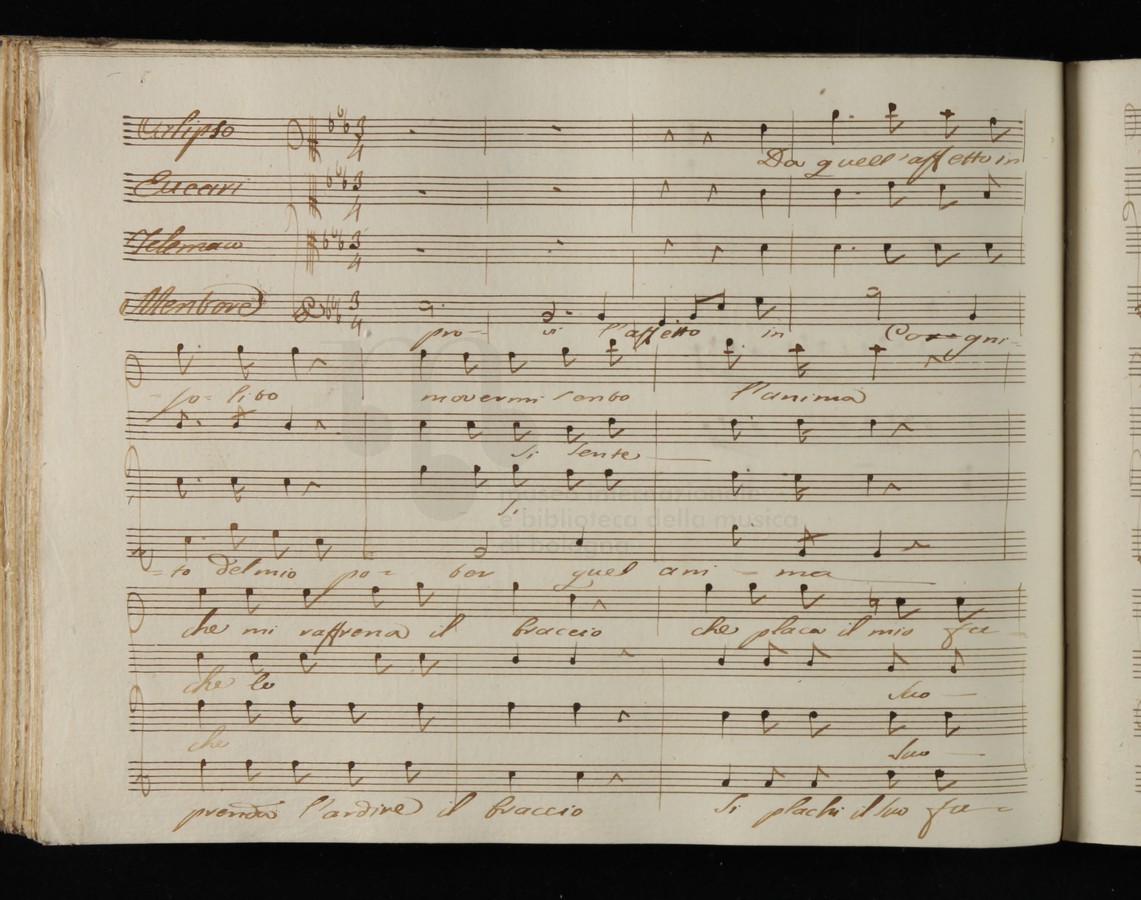 Calipso
Da quell'affetto in
Eucari
Telemaco
Mentore
pro- si l'affetto in Co gni-
so- lito movermi sento l'anima
si sente
si
museo internazionale
e biblioteca della musica
di bologna
-to del mio po- ter quel ani - ma
che mi raffrena il braccio che placa il mio fu
che le suo
che suo
prenda l'ardire il braccio si plachi il suo fu-